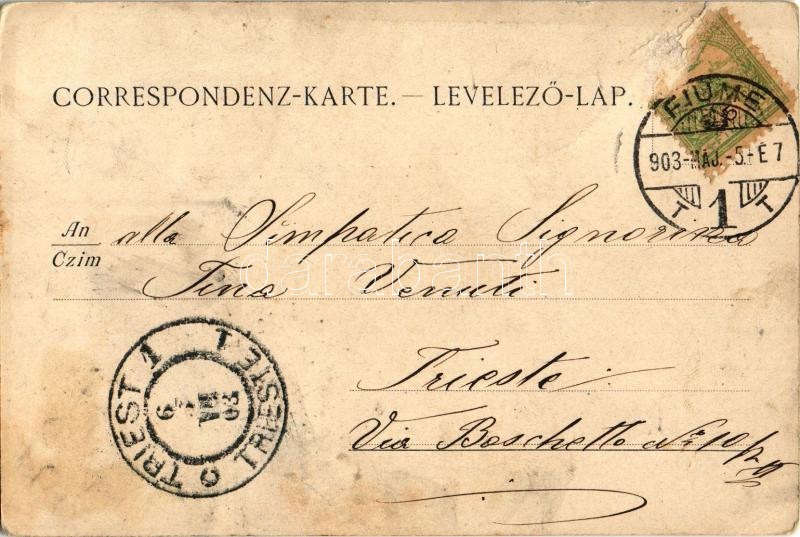 CORRESPONDENZ-KARTE. — LEVELEZŐ-LAP.
FIUME
903-MÁJ.-5.-E7
T 1 T
An alla Simpatica Signorina
Czim
Tina Venuti
darabanth
Trieste
Via Boschetto No 10
TRIEST 1 TRIESTE 1
6 03